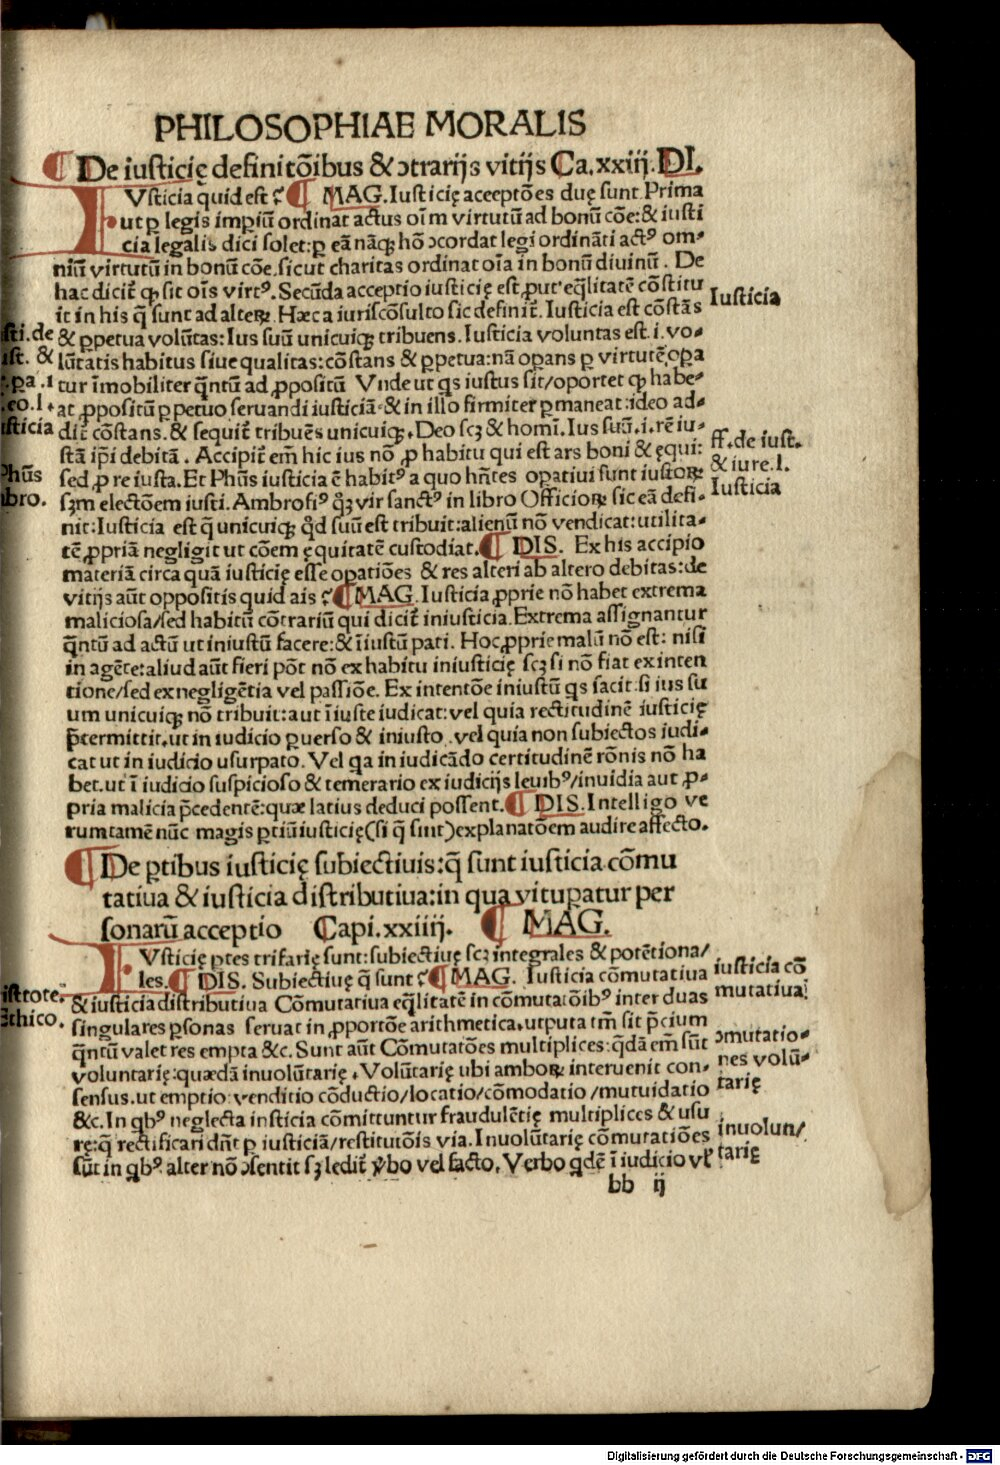 PHILOSOPHIAE MORALIS
¶ De iusticię definitõibus & ↄtrarijs vitijs Ca.xxiij. DI.
IVsticia quid est ¿ ¶ MAG. Iusticię acceptões duę sunt. Prima
ut ꝑ legis impiũ ordinat actus oĩm virtutũ ad bonũ cõe: & iusti
cia legalis dici solet: ꝑ eã nãqꝫ hõ ↄcordat legi ordinãti actꝰ om-
niũ virtutũ in bonũ cõe. sicut charitas ordinat oĩa in bonũ diuinũ. De
hac dicit̃ ꝙ sit oĩs virtꝰ. Secũda acceptio iusticię est, ꝓut eq̃litatẽ cõstitu
it in his q̃ sunt ad alteꝝ. Hæc a iuriscõsulto sic definit̃. Iusticia est cõstãs
& ꝑpetua volũtas: Ius suũ unicuiqꝫ tribuens. Iusticia voluntas est .i. vo-
lũtatis habitus siue qualitas: cõstans & ꝑpetua: nã oꝑans ꝑ virtutẽ, oꝑa
tur ĩmobiliter q̃ntũ ad ꝓpositũ Vnde ut qs iustus sit/oportet ꝙ habe-
at ꝓpositũ ꝑpetuo seruandi iusticiã & in illo firmiter ꝑmaneat: ideo ad-
dit̃ cõstans. & sequit̃ tribuẽs unicuiqꝫ. Deo scꝫ & homĩ. Ius suũ .i. rẽ iu-
stã ip̃i debitã. Accipit̃ em̃ hic ius nõ ꝓ habitu qui est ars boni & ęqui:
sed ꝓ re iusta. Et Phũs iusticia ẽ habitꝰ a quo hñtes opatiui sunt iustoꝝ
sꝫm electõem iusti. Ambrosiꝰ qꝫ vir sanctꝰ in libro Officioꝝ sic eã defi-
nit: Iusticia est q̃ unicuiqꝫ qd̃ suũ est tribuit: alienũ nõ vendicat: utilita-
tẽ ꝓpriã negligit ut cõem ęquitatẽ custodiat. ¶ DIS. Ex his accipio
materiã circa quã iusticię esse opatiões & res alteri ab altero debitas: de
vitijs aũt oppositis quid ais ¿ ¶ MAG. Iusticia ꝓprie nõ habet extrema
maliciosa/sed habitũ cõtrariũ qui dicit̃ iniusticia. Extrema assignantur
q̃ntũ ad actũ ut iniustũ facere: & ĩiustũ pati. Hoc ꝓprie malũ nõ est: nisi
in agẽte: aliud aũt fieri põt nõ ex habitu iniusticię scꝫ si nõ fiat ex inten
tione/sed ex negligẽtia vel passiõe. Ex intentõe iniustũ qs facit si ius su
um unicuiqꝫ nõ tribuit: aut ĩiuste iudicat: vel quia rectitudinẽ iusticię
p̃termittit, ut in iudicio ꝑuerso & iniusto. vel quia non subiectos iudi-
cat ut in iudicio usurpato. Vel qa in iudicãdo certitudinẽ rõnis nõ ha
bet. ut ĩ iudicio suspicioso & temerario ex iudicijs leuibꝰ/inuidia aut ꝓ-
pria malicia p̃cedentẽ: quæ latius deduci possent. ¶ DIS. Intelligo ve
rumtamẽ nũc magis ꝑtiũ iusticię (si q̃ sint) explanatõem audire affecto.
¶ De ꝑtibus iusticię subiectiuis: q̃ sunt iusticia cõmu
tatiua & iusticia distributiua: in qua vituꝑatur per
sonarũ acceptio Capi. xxiiij. ¶ MAG.
IVsticię ꝑtes trifarię sunt: subiectiuę scꝫ integrales & potẽtiona/
les. ¶ DIS. Subiectiuę q̃ sunt ¿ ¶ MAG. Iusticia cõmutatiua
& iusticia distributiua Cõmutatiua eq̃litatẽ in cõmutatõibꝰ inter duas
singulares ꝑsonas seruat in ꝓportõe arithmetica, utputa tm̃ sit p̃cium
q̃ntũ valet res empta &c. Sunt aũt Cõmutatões multiplices: q̃dã em̃ sũt
voluntarię: quædã inuolũtarię. Volũtarię ubi amboꝝ interuenit con-
sensus. ut emptio venditio cõductio/locatio/cõmodatio/mutuidatio
&c. In qbꝰ neglecta insticia cõmittuntur fraudulẽtię multiplices & usu
rę: q̃ rectificari dñt ꝑ iusticiã/restitutõis via. Inuolũtarię cõmutatiões
sũt in qbꝰ alter nõ ↄsentit sꝫ ledit̃ v̾bo vel facto. Verbo qdẽ ĩ iudicio vl̾
bb ij
Iusticia
ff. de iust.
& iure. l.
Iusticia
iusticia cõ
mutatiua
ↄmutatio-
nes volũ-
tarię
inuolun/
tarię
sti. de
ist. &
.pa .1
.eo. l.
isticia
Phũs
bro.
istote.
Ethico.
Digitalisierung gefördert durch die Deutsche Forschungsgemeinschaft - DFG